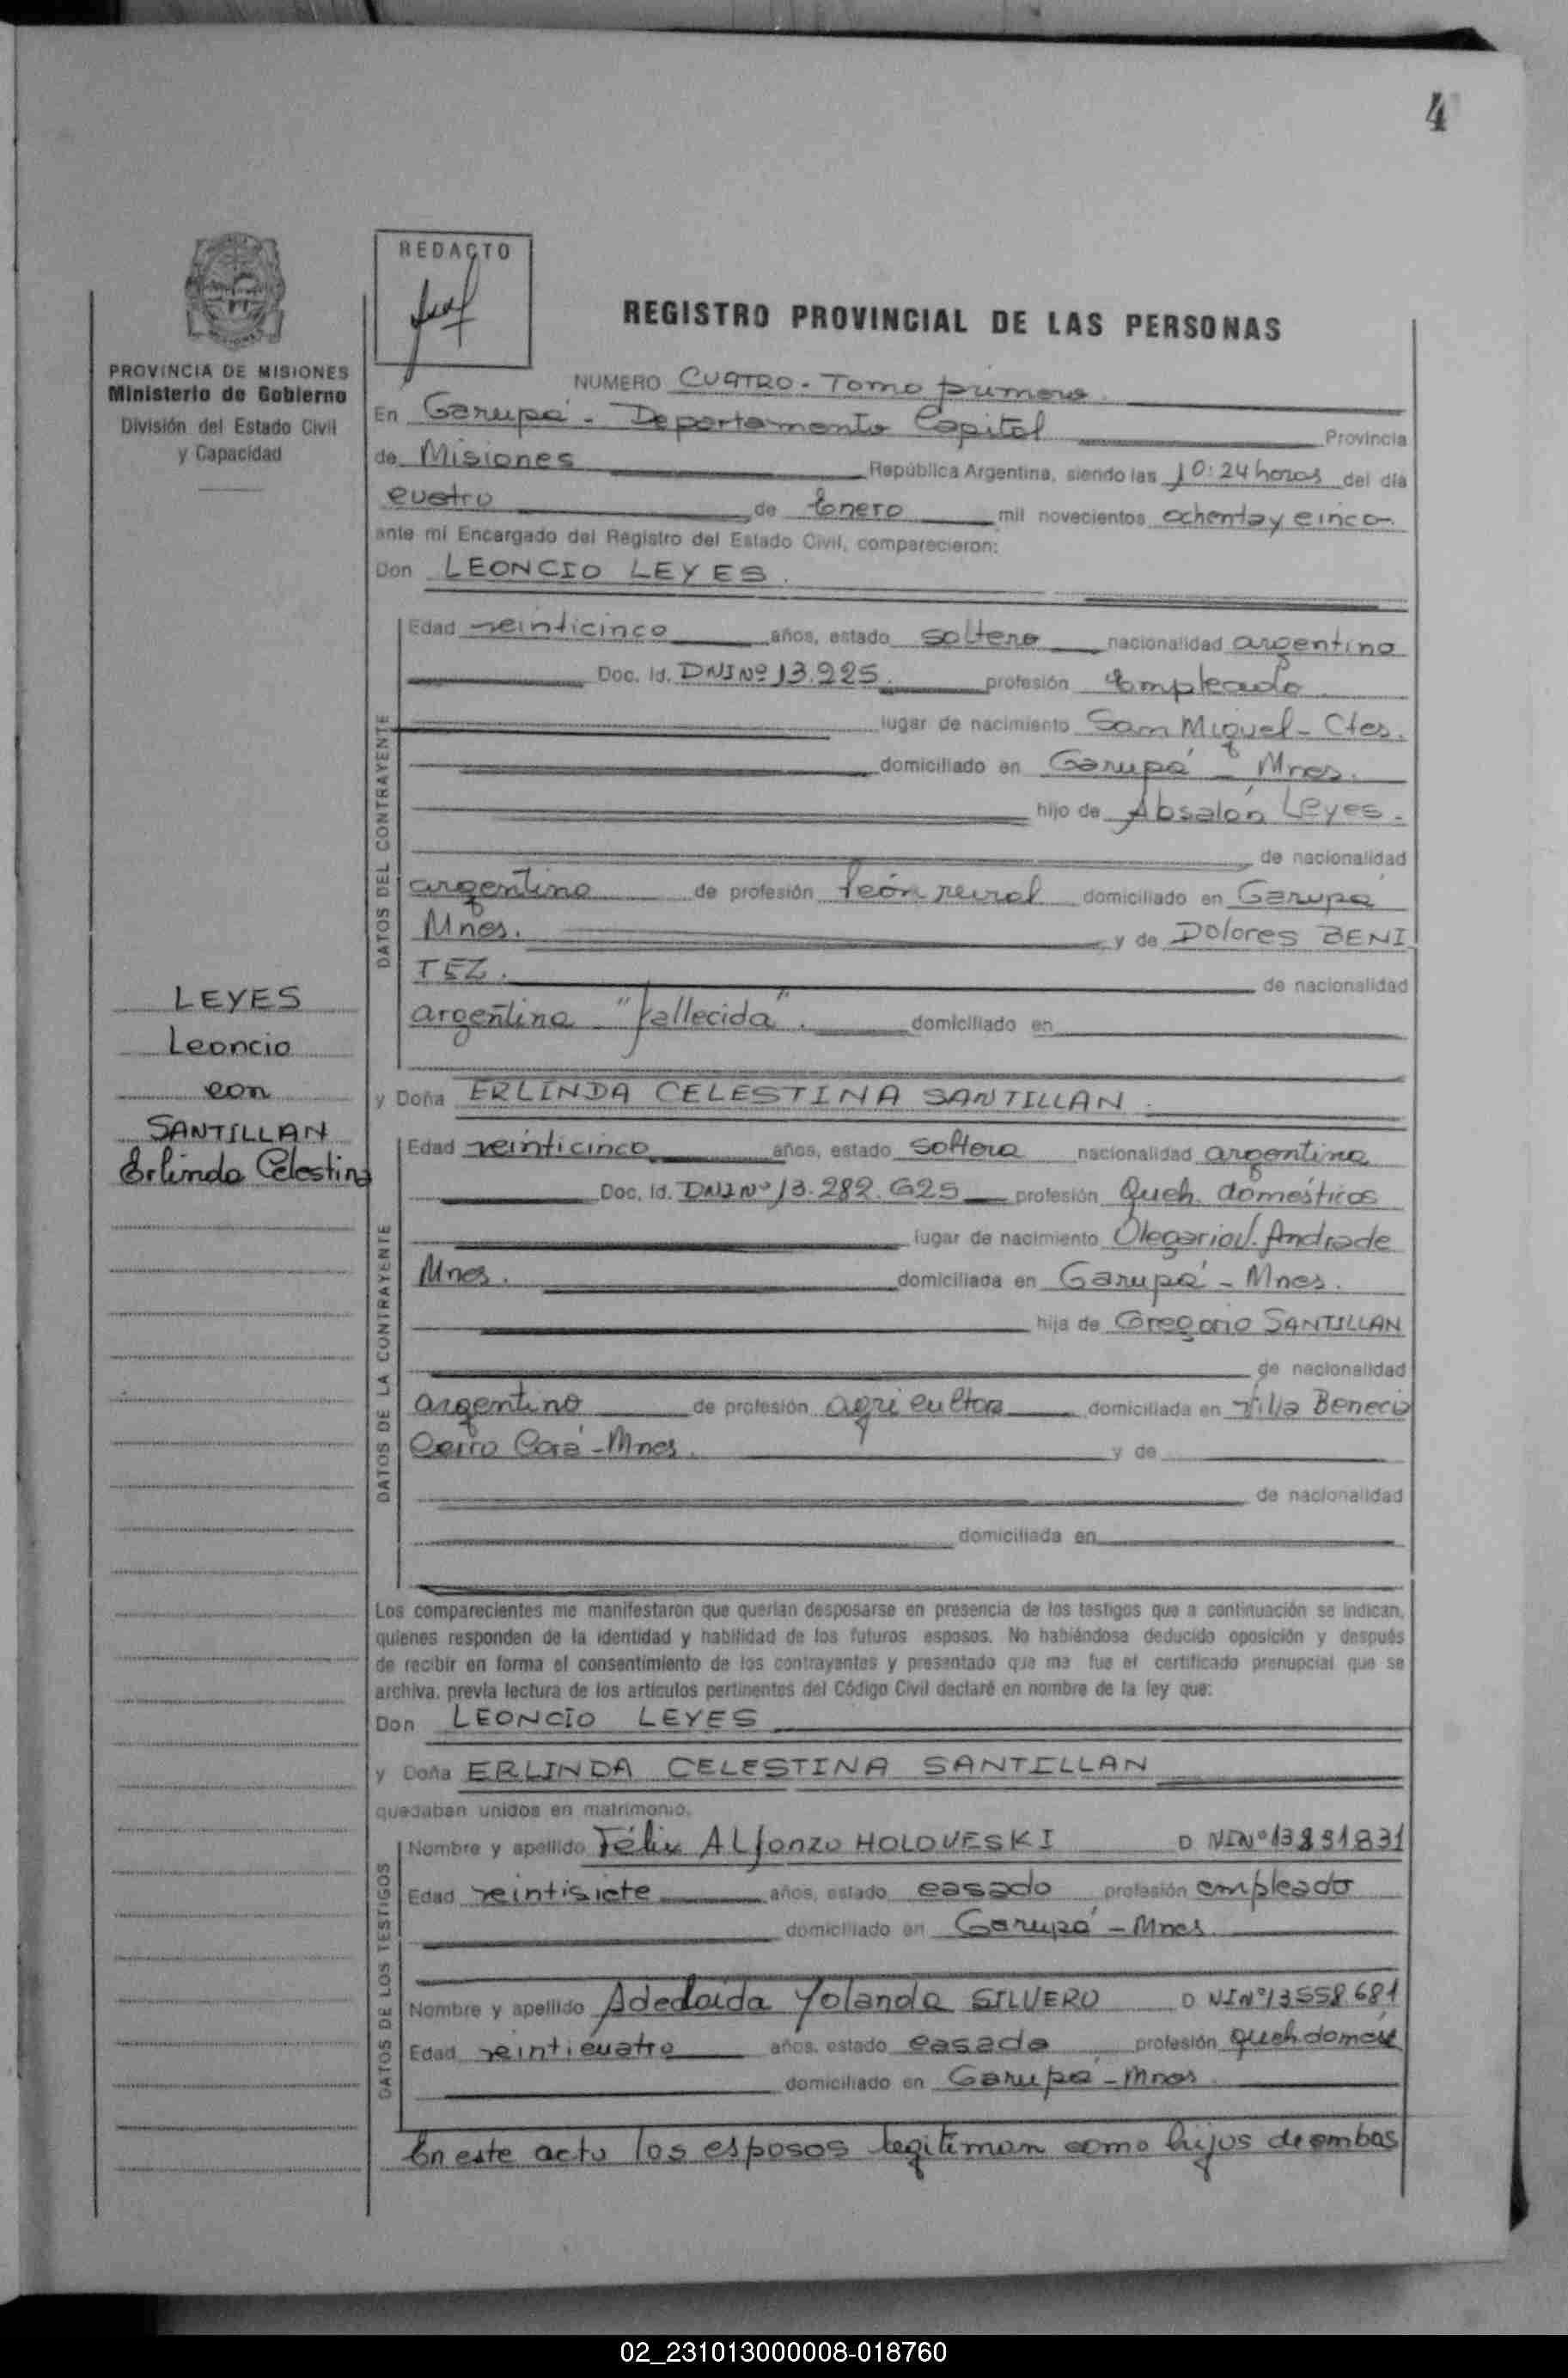 4
REDACTO
REGISTRO PROVINCIAL DE LAS PERSONAS
PROVINCIA DE MISIONES
Ministerio de Gobierno
División del Estado Civil
y Capacidad
NUMERO CUATRO - Tomo primero.
En Garupá - Departamento Capital Provincia
de Misiones República Argentina, siendo las 10:24 horas del día
cuatro de Enero mil novecientos ochenta y cinco-
ante mi Encargado del Registro del Estado Civil, comparecieron:
Don LEONCIO LEYES.
DATOS DEL CONTRAYENTE
Edad veinticinco años, estado soltero nacionalidad argentino
Doc. Id. DNI Nº 13.225. profesión Empleado
lugar de nacimiento San Miguel - Ctes.
domiciliado en Garupá - Mnes.
hijo de Absalón Leyes.
de nacionalidad
argentino de profesión Peón rural domiciliado en Garupá
Mnes. y de Dolores BENI
TEZ. de nacionalidad
argentina "fallecida". domiciliado en
LEYES
Leoncio
con
SANTILLAN
Erlinda Celestina
y Doña ERLINDA CELESTINA SANTILLAN.
DATOS DE LA CONTRAYENTE
Edad veinticinco años, estado soltera nacionalidad argentina
Doc. Id. DNI Nº 13.282.625 profesión Queh. domésticos
lugar de nacimiento Olegario V. Andrade
Mnes. domiciliada en Garupá - Mnes.
hija de Gregorio SANTILLAN
de nacionalidad
argentino de profesión agricultor domiciliada en Villa Benecia
Cerro Corá - Mnes. y de
de nacionalidad
domiciliada en
Los comparecientes me manifestaron que querían desposarse en presencia de los testigos que a continuación se indican,
quienes responden de la identidad y habilidad de los futuros esposos. No habiéndose deducido oposición y después
de recibir en forma el consentimiento de los contrayentes y presentado que me fue el certificado prenupcial que se
archiva, previa lectura de los artículos pertinentes del Código Civil declaré en nombre de la ley que:
Don LEONCIO LEYES
y Doña ERLINDA CELESTINA SANTILLAN
quedaban unidos en matrimonio.
DATOS DE LOS TESTIGOS
Nombre y apellido Félix ALfonzo HOLOVESKI D NI Nº 13831831
Edad veintisiete años, estado casado profesión empleado
domiciliado en Garupá - Mnes.
Nombre y apellido Adedaida Yolanda SILVERO D NI Nº 13558.681
Edad veinticuatro años, estado casada profesión queh. domést
domiciliado en Garupá - Mnes.
En este acto los esposos legitiman como hijos de ambos
02_231013000008-018760